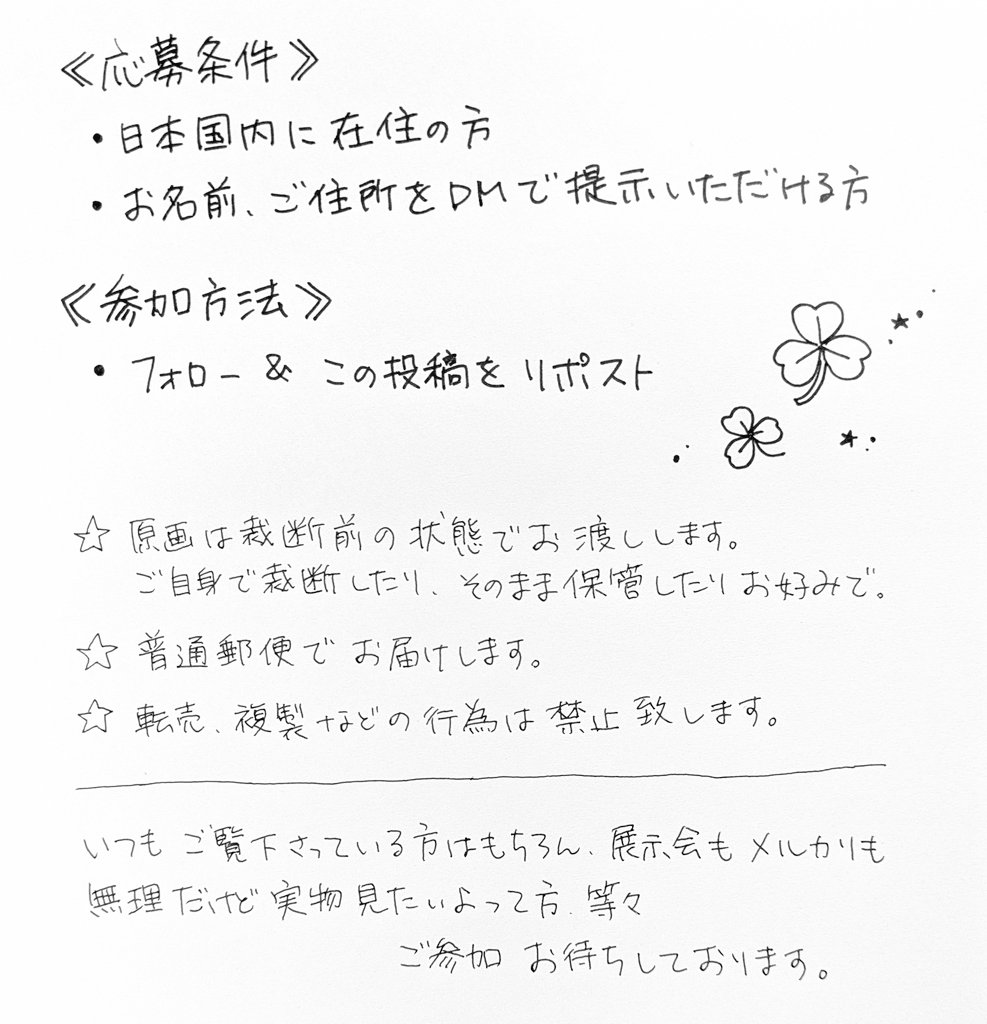 ≪応募条件≫
・日本国内に在住の方
・お名前、ご住所をDMで提示いただける方
≪参加方法≫
・フォロー & この投稿をリポスト
☆ 原画は裁断前の状態でお渡しします。
ご自身で裁断したり、そのまま保管したりお好みで。
☆ 普通郵便でお届けします。
☆ 転売、複製などの行為は禁止致します。
いつもご覧下さっている方はもちろん、展示会もメルカリも
無理だけど実物見たいよって方、等々
ご参加お待ちしております。